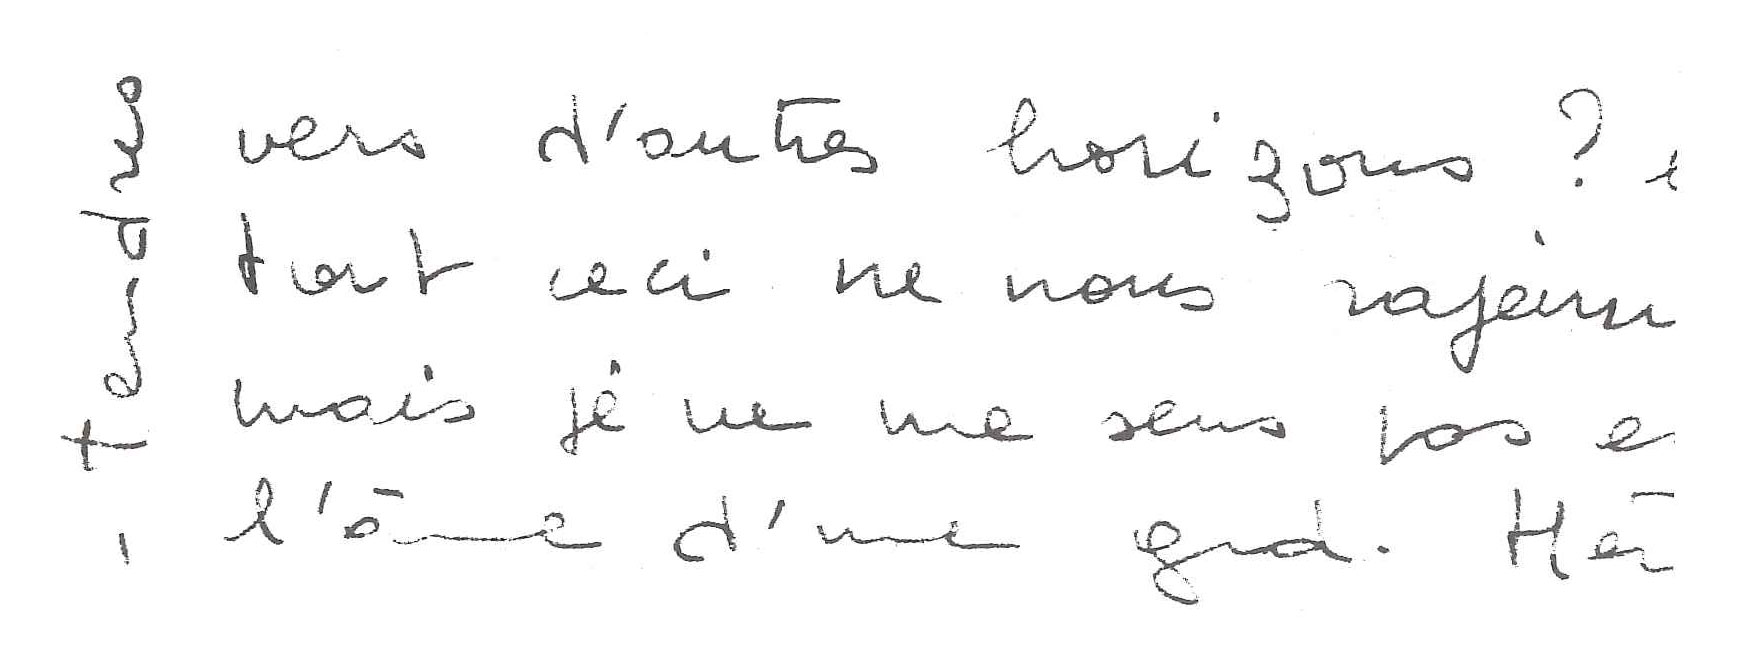 vers d'autres horizons ?
tout ceci ne nous rajeun
mais je ne me sens pas e
l'âme d'une gd. Hé